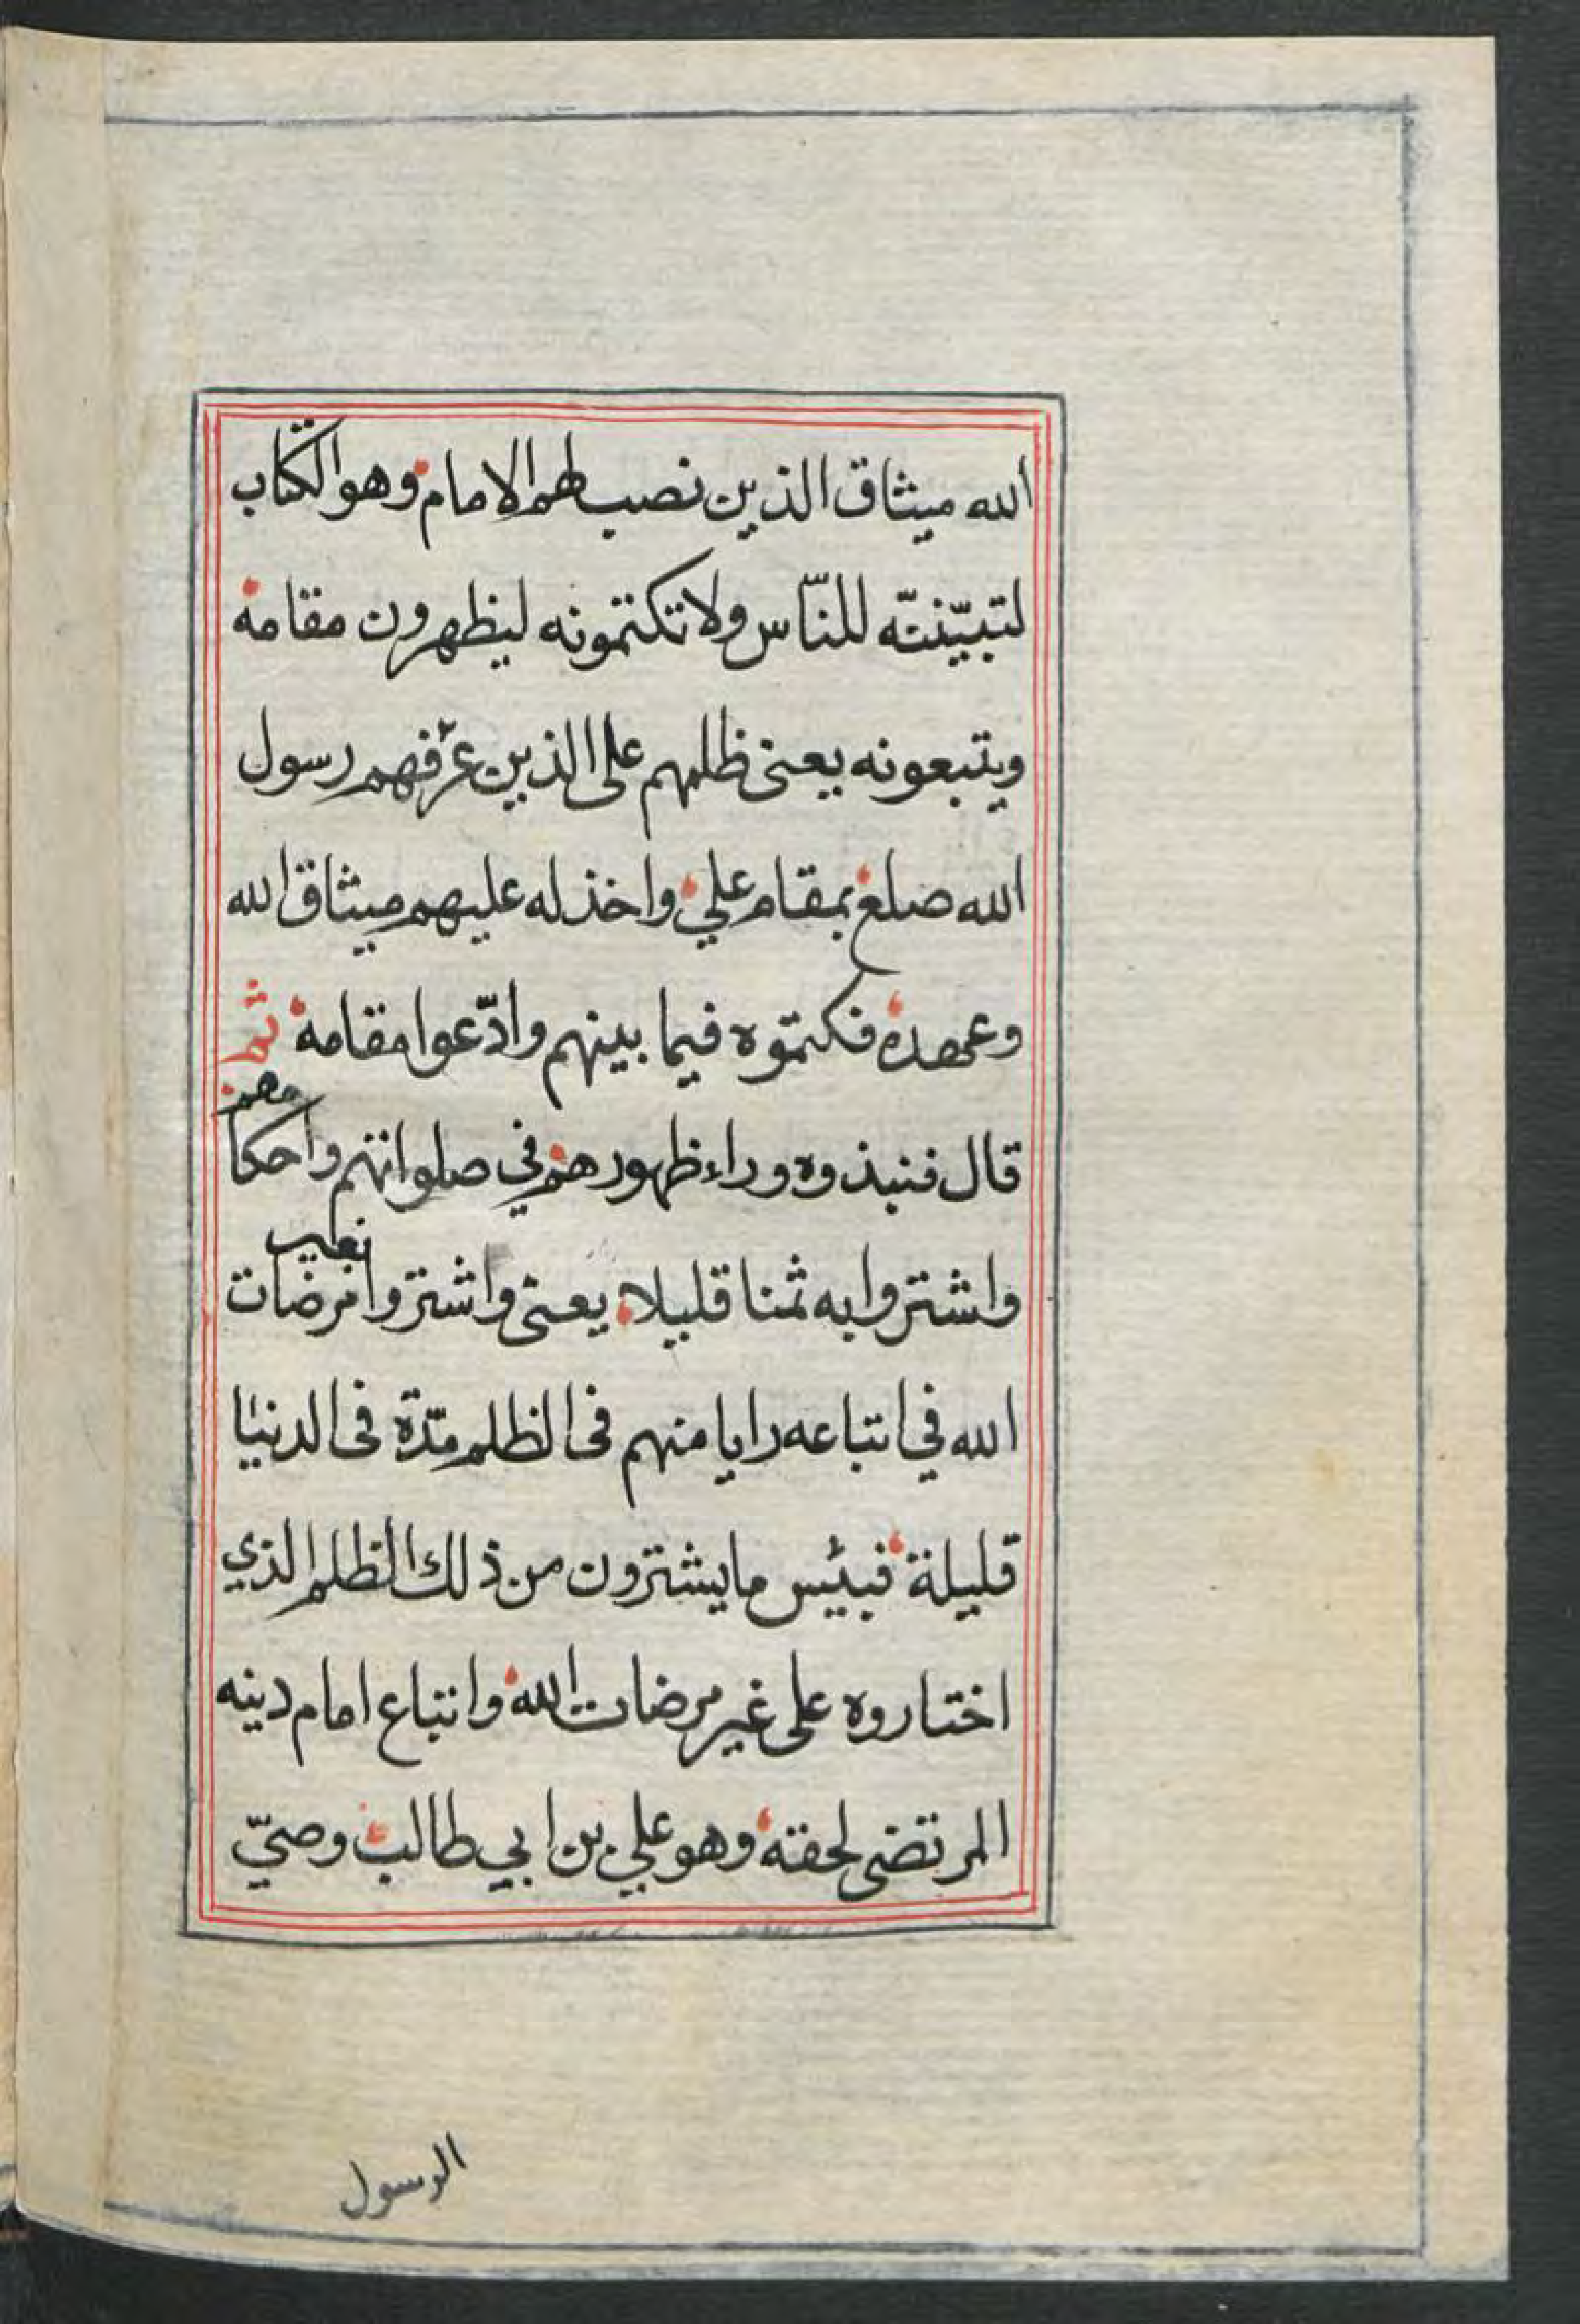 الله ميثاق الذين نصب لهم الامام وهو الكتاب
لتبيّننّه للنّاس ولا تكتمونه ليظهرون مقامه
ويتبعونه يعنى ظلمهم على الذين عرّفهم رسول
الله صلع بمقام علي واخذ له عليهم ميثاق الله
وعهده فكتموه فيما بينهم وادّعوا مقامه ثم
قال فنبذوه وراء ظهورهم في صلواتهم واحكامهم
واشتروا به ثمنا قليلا يعنى واشتروا بغير مرضات
الله في اتباعه رايا منهم فى الظلم مدّة فى الدنيا
قليلة فبئس ما يشترون من ذلك الظلم الذي
اختاروه على غير مرضات الله واتباع امام دينه
المرتضى لحقته وهو علي بن ابي طالب وصيّ
الرسول